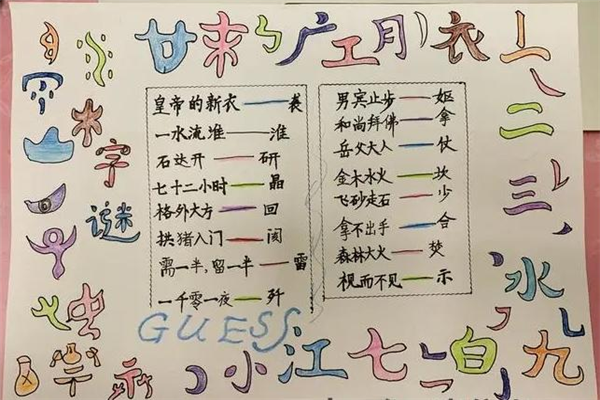 廿 广 工 月 衣
字谜
皇帝的新衣——袭
一水流淮——淮
石达开——研
七十二小时——晶
格外大方——回
拱猪入门——阂
需一半,留一半——雷
一千零一夜——歼
男宾止步——妪
和尚拜佛——拿
岳父大人——仗
金木水火——坎
飞砂走石——少
拿不出手——合
森林大火——焚
视而不见——示
二
三
水
GUESS
小江七白九